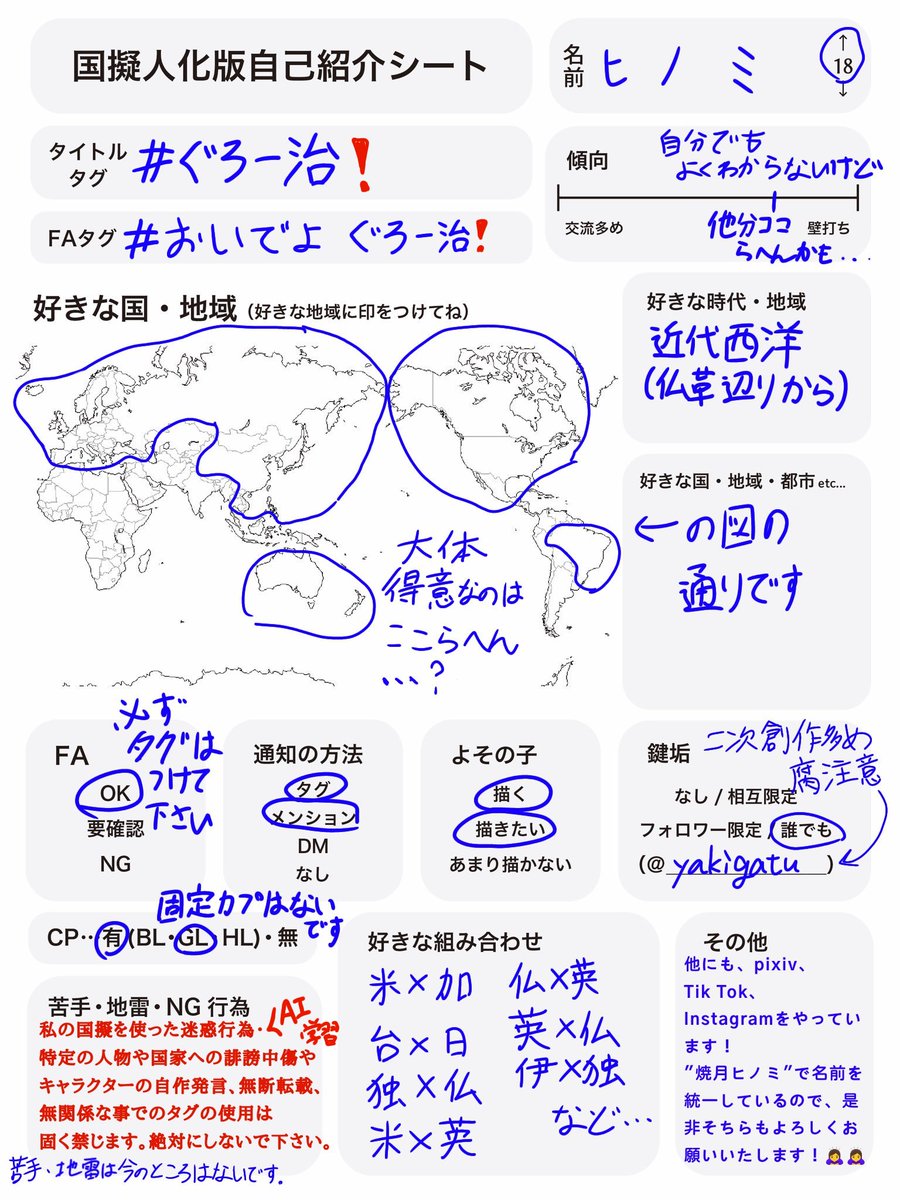 国擬人化版自己紹介シート
名前 ヒノミ
↑
18
↓
タイトルタグ #ぐろー治❗
FAタグ #おいでよ ぐろー治❗
傾向
自分でも
よくわからないけど
交流多め
壁打ち
他分ココ
らへんかも...
好きな国・地域(好きな地域に印をつけてね)
大体
得意なのは
ここらへん
...?
好きな時代・地域
近代西洋
(仏革辺りから)
好きな国・地域・都市 etc...
←の図の
通りです
FA
OK
要確認
NG
必ず
タグは
つけて
下さい
通知の方法
タグ
メンション
DM
なし
よその子
描く
描きたい
あまり描かない
鍵垢
二次創作多め
腐注意
なし / 相互限定
フォロワー限定 / 誰でも
(@yakigatu)
固定カプはない
です
CP…有(BL・GL・HL)・無
苦手・地雷・NG 行為
私の国擬を使った迷惑行為・
AI
学習
特定の人物や国家への誹謗中傷や
キャラクターの自作発言、無断転載、
無関係な事でのタグの使用は
固く禁じます。絶対にしないで下さい。
苦手・地雷は今のところはないです.
好きな組み合わせ
米×加
台×日
独×仏
米×英
仏×英
英×仏
伊×独
など...
その他
他にも、pixiv、
Tik Tok、
Instagramをやってい
ます!
"焼月ヒノミ"で名前を
統一しているので、是
非そちらもよろしくお
願いいたします!🙇‍♀️🙇‍♀️